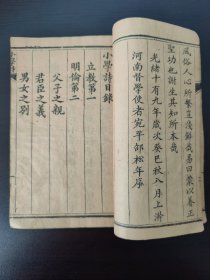 風俗人心所繫豈淺鮮哉易曰蒙以養正
聖功也謝生其知所本哉
光緒十有九年歲次癸巳秋八月上澣
河南督學使者宛平邵松年序
小學詩目錄
立教第一
明倫第二
父子之親
君臣之義
男女之別